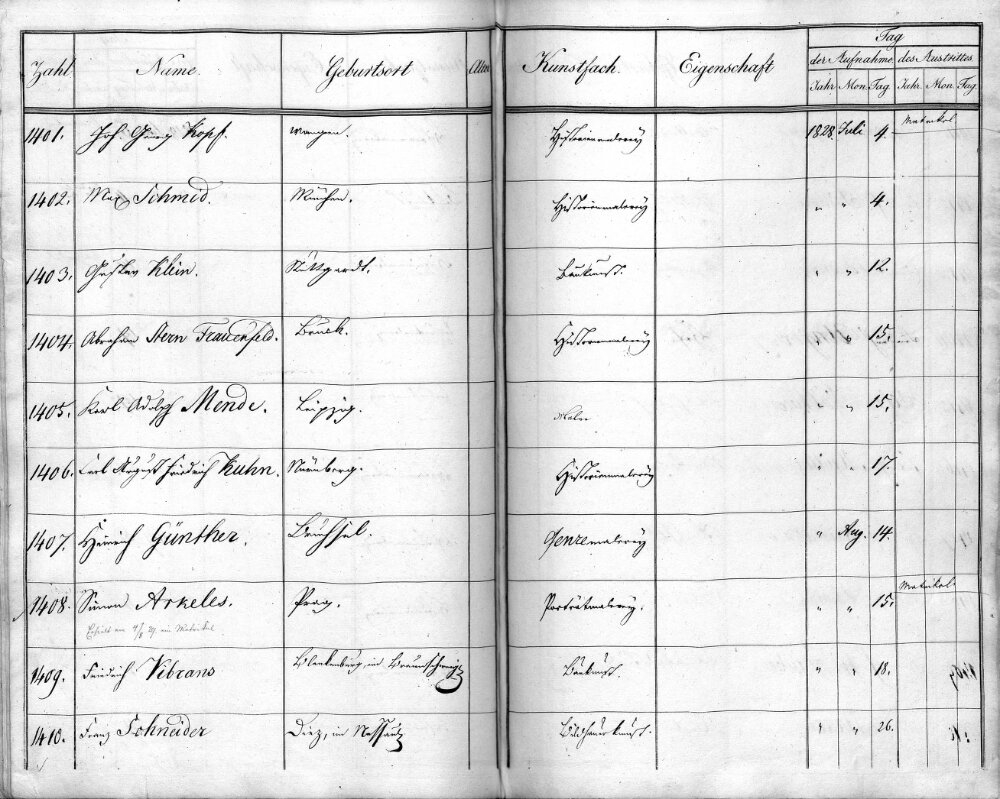 Zahl Name. Geburtsort Alter Kunstfach. Eigenschaft Tag
der Aufnahme des Austrittes
Jahr Mon. Tag. Jahr. Mon. Tag.
1401. Joh. Georg Kopf. Wangen. Historienmalerey 1828. Juli 4. Matrikel.
1402. Max Schmid. München. Historienmalerey " " 4.
1403. Gustav Klein. Stuttgardt. Baukunst. " " 12.
1404. Abraham Stern Frauenfeld. Bruck. Historienmalerey " 15.
1405. Karl Adolph Mende. Leipzig. Maler " 15.
1406. Carl August Friedrich Kuhn. Nürnberg. Historienmalerey 17.
1407. Heinrich Günther. Bruchsal. Genremalerey " Aug. 14.
1408. Simon Arkeles. Prag. Porträtmalerey. " " 15. Matrikel.
Erhält am ein Matrikel
1409. Friedrich Vibrans Blankenburg, im Braunschweig Baukunst. " " 18.
1410. Franz Schneider Diez, im Nassau Bildhauerkunst. " " 26.